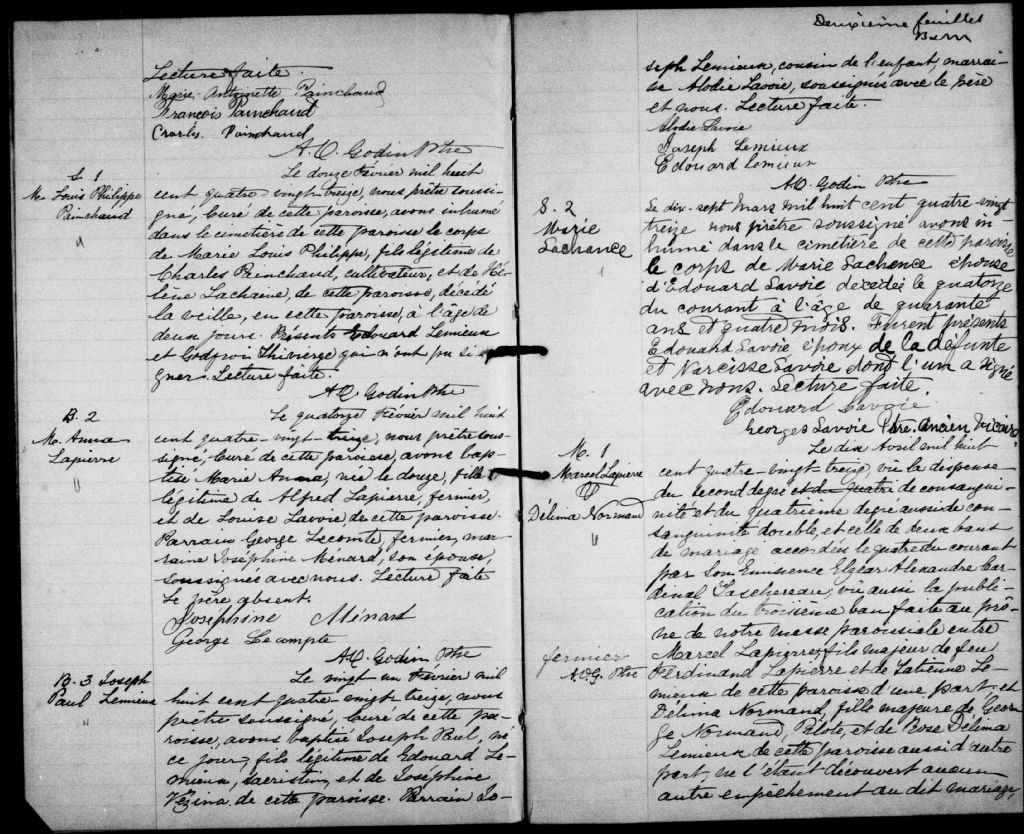 Lecture faite.
Marie-Antoinette Painchaud
François Painchaud
Charles Painchaud
A. O. Godin Ptre
S. 1
M. Louis Philippe
Painchaud
"
Le douze Février mil huit
cent quatre vingt-treize, nous prêtre soussi-
gné, Curé de cette paroisse, avons inhumé
dans le cimetière de cette paroisse le corps
de Marie Louis Philippe, fils légitime de
Charles Painchaud, cultivateur, et de Hé-
lène Lachaine, de cette paroisse, décédé
la veille, en cette paroisse, à l'âge de
deux jours. Présents Edouard Lemieux
et Godfroi Thivierge qui n'ont pu si-
gner. Lecture faite.
A. O. Godin Ptre
B. 2
M. Anna
Lapierre
"
Le quatorze Février mil huit
cent quatre-vingt-treize, nous prêtre sous-
signé, Curé de cette paroisse, avons bap-
tisé Marie Anna, née le douze, fille
légitime de Alfred Lapierre, fermier,
et de Louise Lavoie, de cette paroisse.
Parrain George Lecomte, fermier, mar-
raine Joséphine Ménard, son épouse,
soussignée avec nous. Lecture faite
Le père absent.
Joséphine Ménard
George Lecompte
A. O. Godin Ptre
B. 3 Joseph
Paul Lemieux
"
Le vingt un Février mil
huit cent quatre vingt-treize, nous
prêtre soussigné, Curé de cette pa-
roisse, avons baptisé Joseph Paul, né
ce jour, fils légitime de Edouard Le-
mieux, sacristain, et de Joséphine
Vézina de cette paroisse. Parrain Jo-
Deuxième feuillet
seph Lemieux, cousin de l'enfant, marrai-
ne Alodie Lavoie, soussignés avec le père
et nous. Lecture faite.
Alodie Lavoie
Joseph Lemieux
Edouard Lemieux
A. O. Godin Ptre
S. 2
Marie
Lachance
Le dix-sept Mars mil huit cent quatre-vingt
treize nous prêtre soussigné avons in-
humé dans le cimetière de cette paroisse
le corps de Marie Lachance épouse
d'Edouard Savoie décédée le quatorze
du courant à l'âge de quarante
ans et quatre mois. Furent présents
Edouard Savoie époux de la défunte
et Narcisse Savoie dont l'un a signé
avec nous. Lecture faite.
Edouard Savoie
Georges Savoie Ptre. Ancien Vicaire
M. 1
Marcel Lapierre
&
Délima Normand
"
Le dix Avril mil huit
cent quatre-vingt-treize, vu la dispense
du second degré et du quatre de consangui-
nité et du quatrième degré aussi de con-
sanguinité double, et celle de deux bans
de mariage accordées le quatre du courant
par Son Eminence Elzéar Alexandre Car-
dinal Taschereau, vu aussi la publi-
cation du troisième ban faite au prô-
ne de notre messe paroissiale entre
Marcel Lapierre, fils majeur de feu
fermier
A.O.G. Ptre
Ferdinand Lapierre et de Tatienne Le-
mieux de cette paroisse d'une part, et
Délima Normand, fille majeure de Geor-
ge Normand, Pilote, et de Rose Délima
Lemieux de cette paroisse aussi d'autre
part, ne s'étant découvert aucun
autre empêchement au dit mariage,